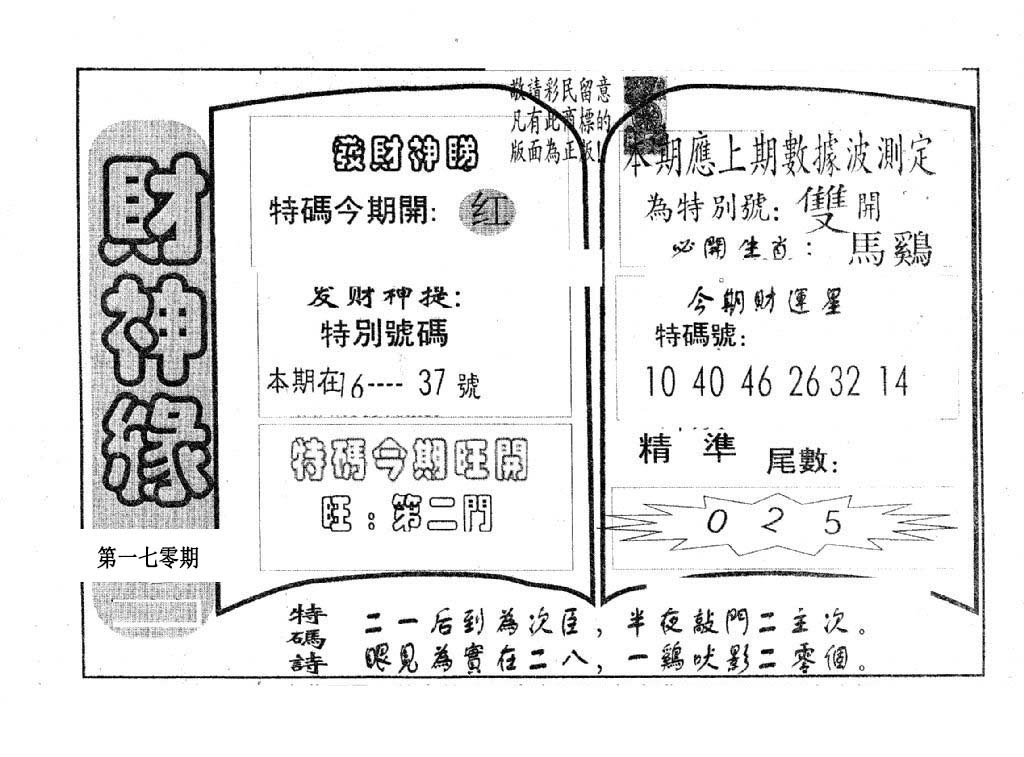 財神緣
第一七零期
敬請彩民留意
凡有此商標的
版面為正版!
發財神睇
特碼今期開: 红
发财神提:
特別號碼
本期在16---- 37 號
特碼今期旺開
旺:第二門
本期應上期數據波測定
為特別號: 雙開
必開生肖: 馬鷄
今期財運星
特碼號:
10 40 46 26 32 14
精準 尾數:
0 2 5
特碼詩
二一后到為次臣,半夜敲門二主次。
眼見為實在二八,一鷄吠影二零個。